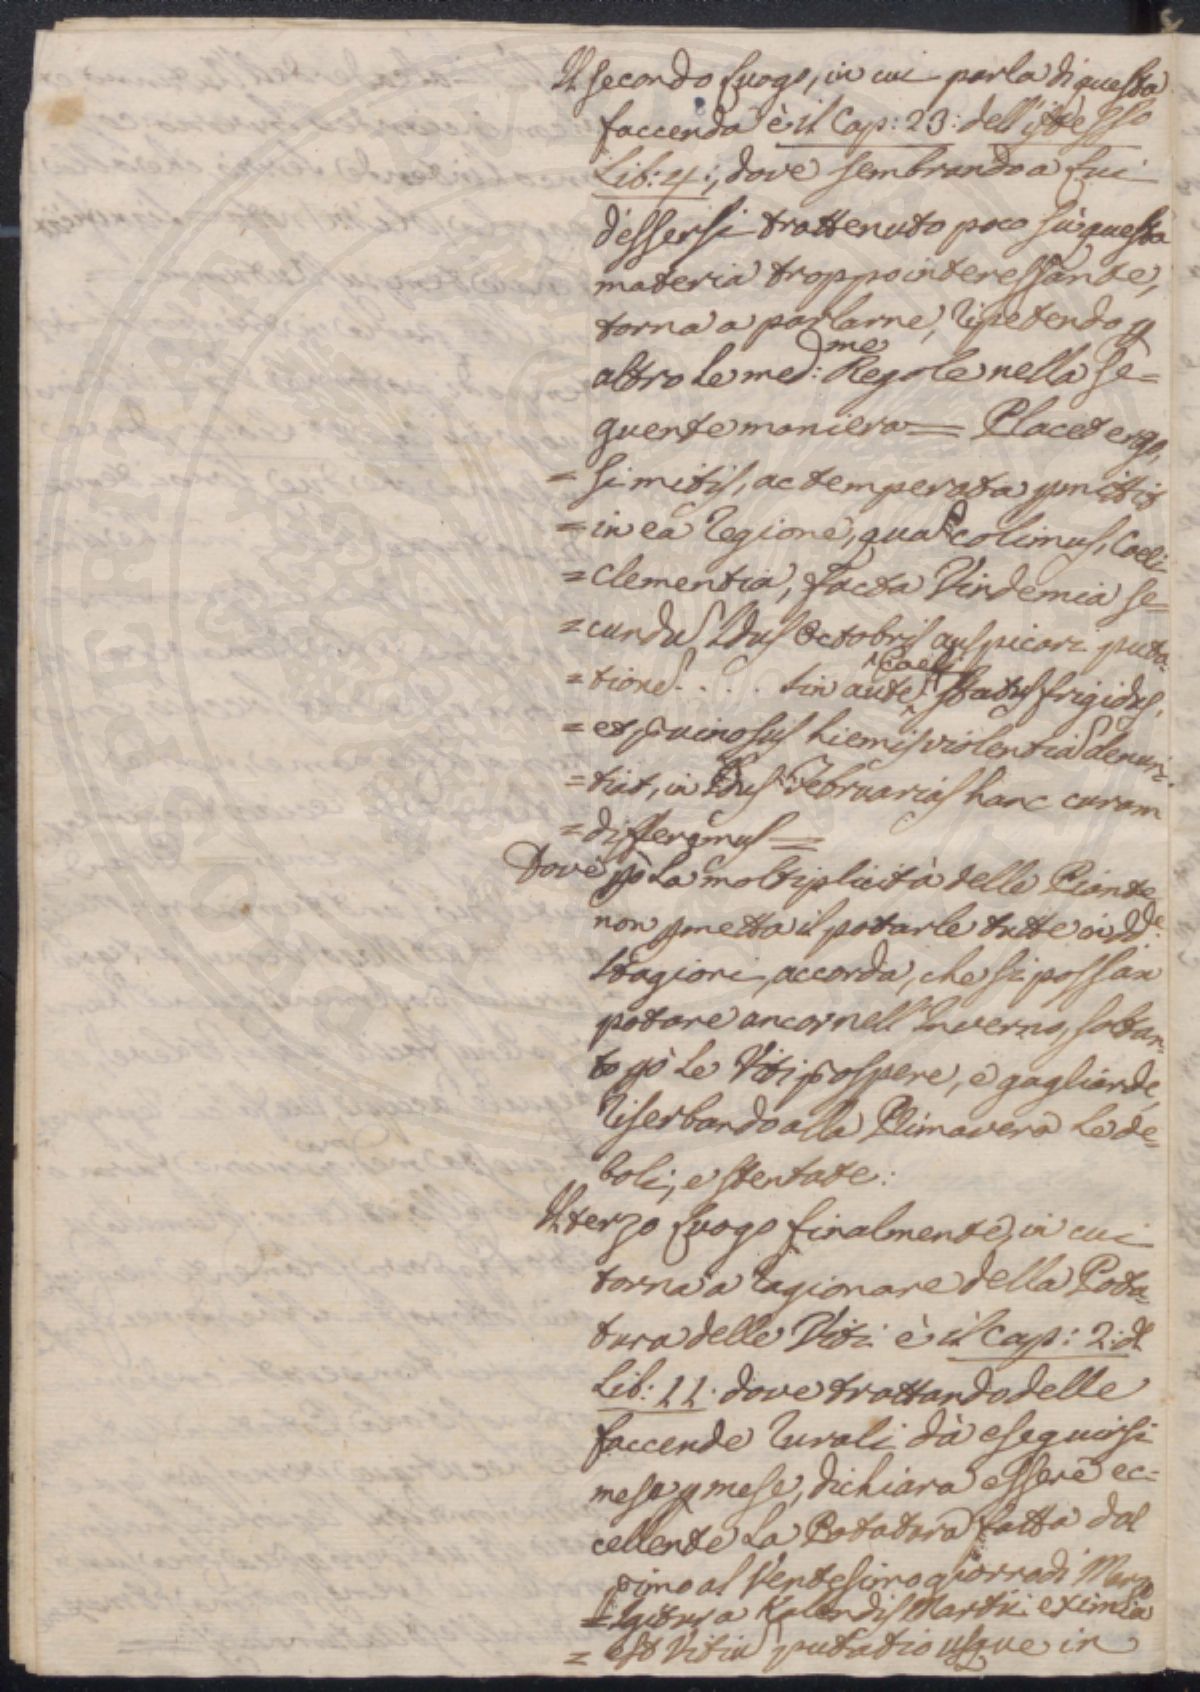 Il secondo luogo, in cui parla di questa
faccenda è il Cap: 23: dell'istesso
Lib: 4:, dove sembrando a lui
d'essersi trattenuto poco sù questa
materia troppo interessante,
torna a parlarne, ripetendo p
altro le med:me Regole nella se=
guente maniera = Placet ergo,
= si mitis, ac temperata pmittit
= in ea regione, qua colimus, Coeli
= clementia, facta Vindemia se=
= cundu Idus Octobris auspicari puta-
= tione . . . . sin aute Coeli status frigidus,
= et pruinosus hiemis violentia denun-
= tiat, in Idus Februarias hanc curam
= differimus =
Dove pò la moltiplicità delle Piante
non pmetta il potarle tutte in dde:
stagioni, accorda, che si possan
potare ancor nell'Inverno, soltan-
to pò le Viti prospere, e gagliarde,
riserbando alla Primavera le de-
boli, e stentate:
Il terzo luogo finalmente, in cui
torna a ragionare della Pota-
tura delle Viti è il Cap: 2: dl
Lib: 11: dove trattando delle
faccende rurali dà eseguirsi
mese p mese, dichiara essere ec=
cellente la Potatura fatta dal
primo al Ventesimo giorno di Marzo
= Igitur a Kalendis Martii eximia
= est Vitiu putatio usque in